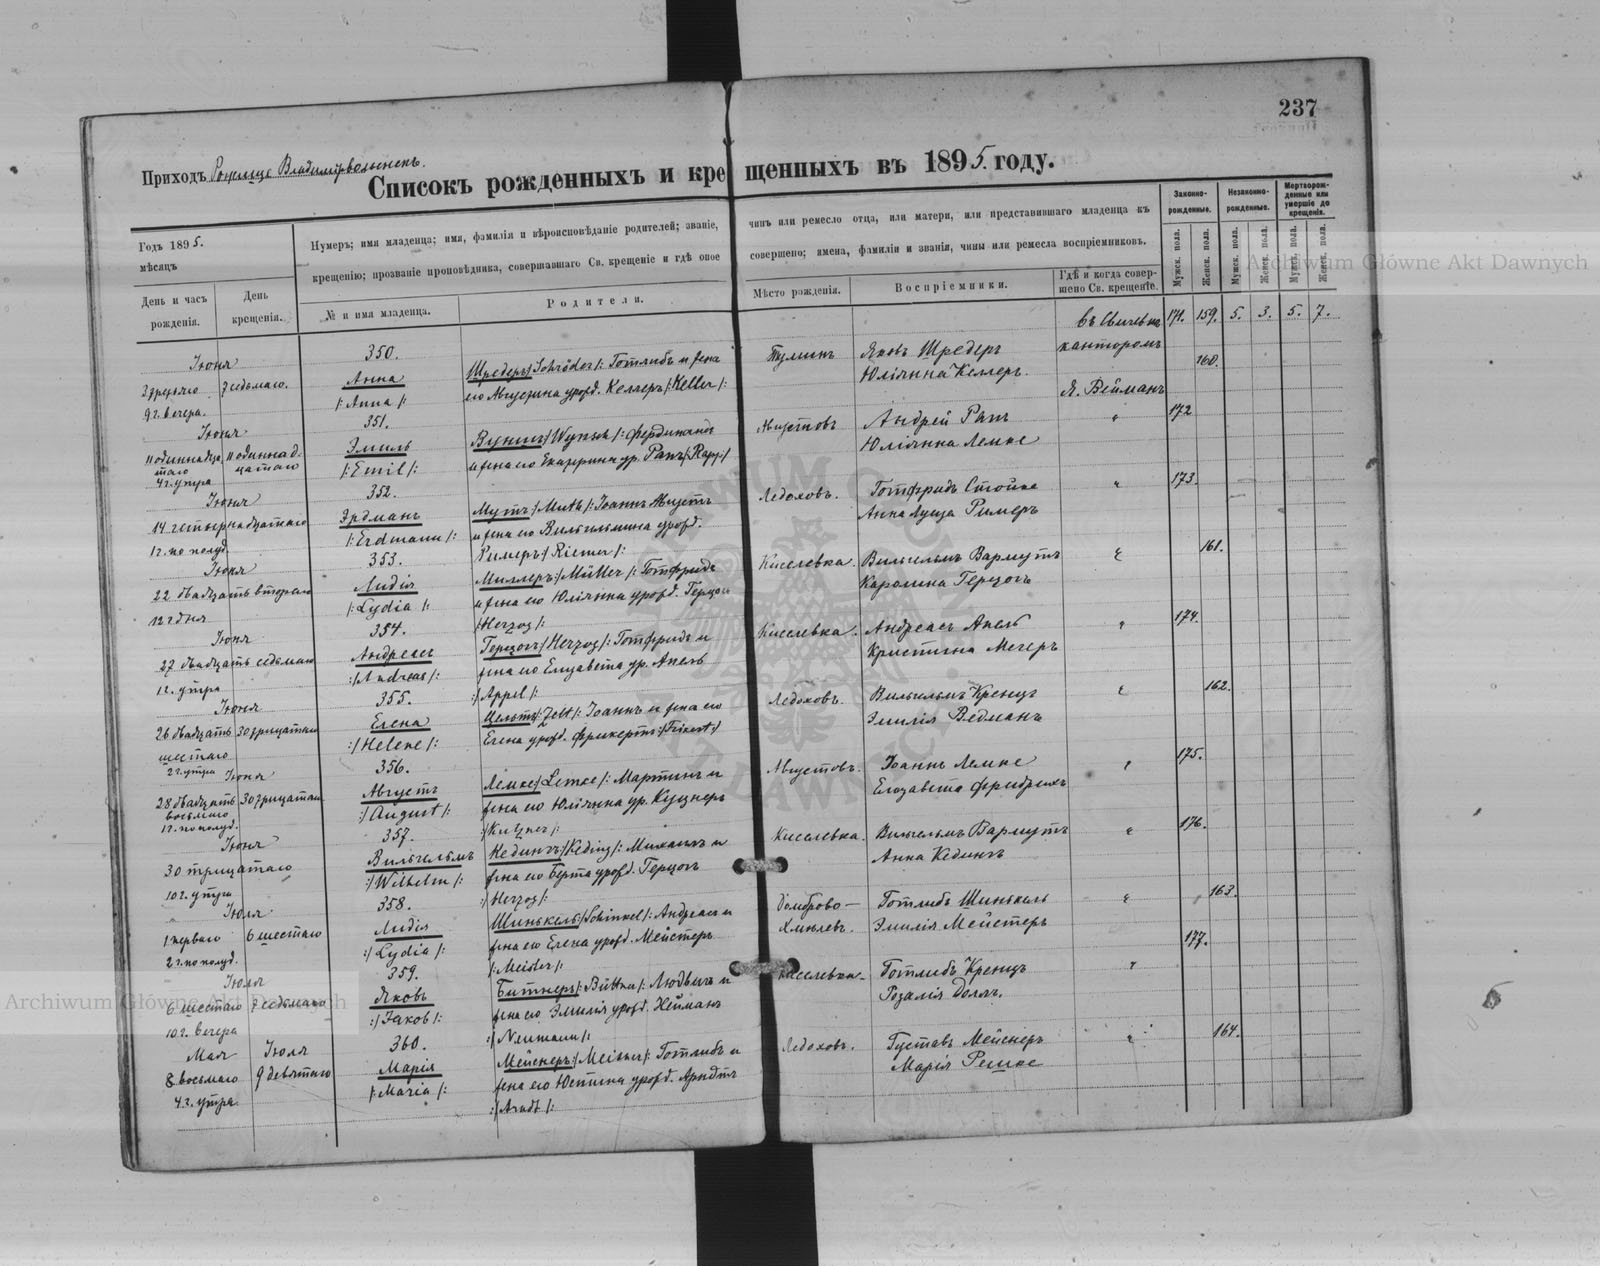 237
Приходъ Рожище Владимірволынскъ.
Списокъ рожденныхъ и крещенныхъ въ 1895. году.
Годъ 1895.
мѣсяцъ
Нумеръ; имя младенца; имя, фамилія и вѣроисповѣданіе родителей; званіе, чинъ или ремесло отца, или матери, или представившаго младенца къ
крещенію; прозваніе проповѣдника, совершавшаго Св. крещеніе и гдѣ оное совершено; имена, фамиліи и званія, чины или ремесла воспріемниковъ.
Законно-рожденные.
Незаконно-рожденные.
Мертворожденные или умершіе до крещенія.
День и часъ рожденія.
День крещенія.
№ и имя младенца.
Родители.
Мѣсто рожденія.
Воспріемники.
Гдѣ и когда совершено Св. крещеніе.
Мужск. пола.
Женск. пола.
Мужск. пола.
Женск. пола.
Мужск. пола.
Женск. пола.
171. 159. 5. 3. 5. 7.
Іюня
3 третьяго 7 седьмаго.
9 г. вечера.
350.
Анна
/: Anna /:
Шредеръ /: Schröder /: Готлибъ и жена
его Августина урожд. Келлеръ /: Keller /:
Яковъ Шредеръ
Юліянна Келлеръ.
въ
канторомъ
Я. Вейманъ
160.
Іюня
11 одиннадцатаго 11 одиннадцатаго
4 г. утра
351.
Эмиль
/: Emil /:
Фердинандъ
и жена его Екатерина ур. Рапъ /: Rapp /:
Августовъ
Андрей Рапъ
Юліянна Лемке
"
172
Іюня
14 четырнадцатаго
1 г. по полуд.
352.
Эрдманъ
/: Erdmann /:
Мутъ /: Muth /: Іоаннъ Августъ
и жена его Вильгельмина урожд.
Римеръ /: Riemer /:
Ледоховъ.
Готфридъ Стойке
Анна Луиза Римеръ
"
173.
Іюня
22 двадцать втораго
12 г. дня
353.
Лидія
/: Lydia /:
Миллеръ /: Müller /: Готфридъ
и жена его Юліянна урожд. Герцогъ
/: Herzog /:
Киселевка.
Вильгельмъ Вармутъ
Каролина Герцогъ
"
161.
Іюня
27 двадцать седьмаго
1 г. утра
354.
Андреасъ
:/ Andreas /:
Герцогъ /: Herzog /: Готфридъ и
жена его Елизавета ур. Апель
:/ Appel /:
Киселевка.
Андреасъ Апель
Кристина Мегеръ
"
174.
Іюня
26 двадцать шестаго 30 тридцатаго
2 г. утра
355.
Елена
:/ Helene /:
Цельтъ /: Zelt /: Іоаннъ и жена его
Елена урожд. Фрикертъ
Ледоховъ.
Вильгельмъ Кренцъ
Эмилія Ведманъ
"
162.
Іюня
28 двадцать восьмаго 30 тридцатаго
1 г. по полуд.
356.
Августъ
:/ August /:
Лемке /: Lemke /: Мартинъ и
жена его Юліянна ур. Куцнеръ
:/ Kutzner /:
Августовъ.
Іоаннъ Лемке
Елизавета Фридрихъ
"
175.
Іюня
30 тридцатаго
10 г. утра
357.
Вильгельмъ
:/ Wilhelm /:
Кедингъ /: Keding /: Михаилъ и
жена его Берта урожд. Герцогъ
:/ Herzog /:
Киселевка.
Вильгельмъ Вармутъ
Анна Кедингъ
"
176.
Іюля
1 перваго 6 шестаго
2 г. по полуд.
358.
Лидія
:/ Lydia /:
Шинкель /: Schinkel /: Андреасъ и
жена его Елена урожд. Мейстеръ
/: Meister /:
Домброво-
Готлибъ Шинкель
Эмилія Мейстеръ
"
163.
Іюля
6 шестаго 7 седьмаго
10 г. вечера
359.
Яковъ
:/ Jakob /:
Битнеръ Людвигъ и
жена его Эмилія урожд. Нейманъ
:/ Neumann /:
Киселевка.
Готлибъ Кренцъ
Розалія
"
177.
Мая Іюля
8 восьмаго 9 девятаго
4 г. утра
360.
Марія
/: Maria /:
Мейснеръ Готлибъ и
жена его Юстина урожд. Арндтъ
:/ Arndt /:
Ледоховъ.
Густавъ Мейснеръ
Марія Решке
"
164.
Archiwum Główne Akt Dawnych
Archiwum Główne Akt Dawnych